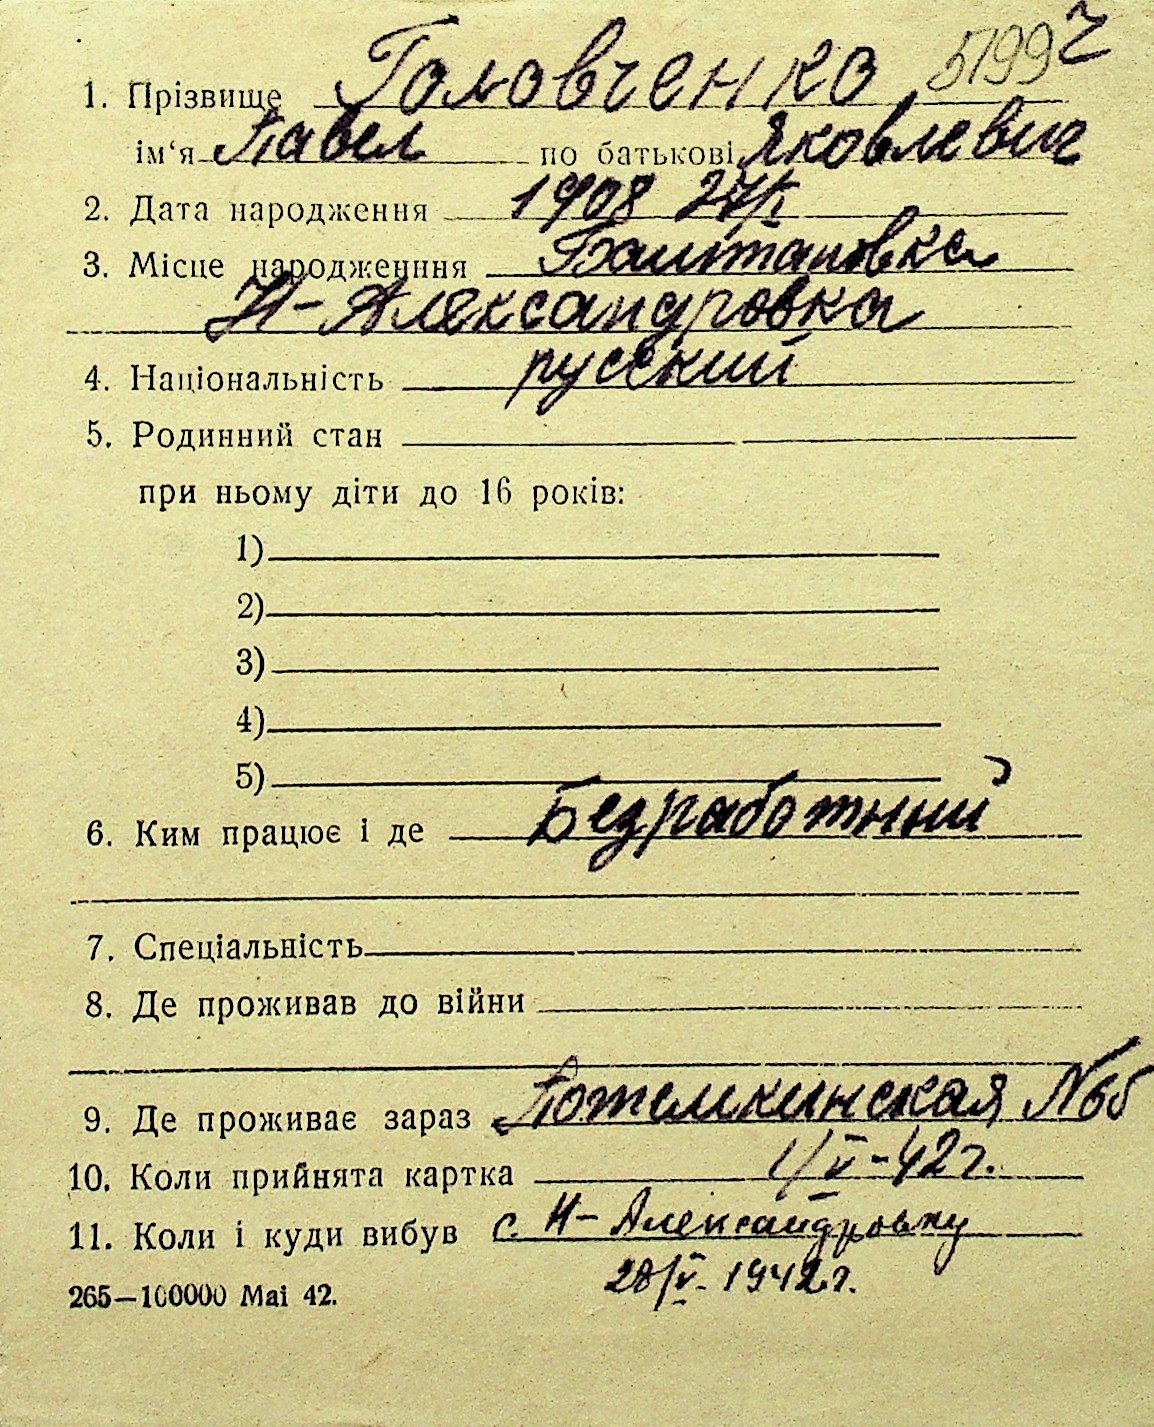 1. Прізвище Головченко 5199 ч
ім‘я Павел по батькові Яковлевич
2. Дата народження 1908 27/I
3. Місце народженння Баштановка
Н-Александровка
4. Національність русский
5. Родинний стан
при ньому діти до 16 років:
1)
2)
3)
4)
5)
6. Ким працює і де Безработный
7. Спеціальність
8. Де проживав до війни
9. Де проживає зараз Потемкинская №65
10. Коли прийнята картка 1/V-42г.
11. Коли і куди вибув с. Н-Александровку
28/V-1942г.
265—100000 Маі 42.